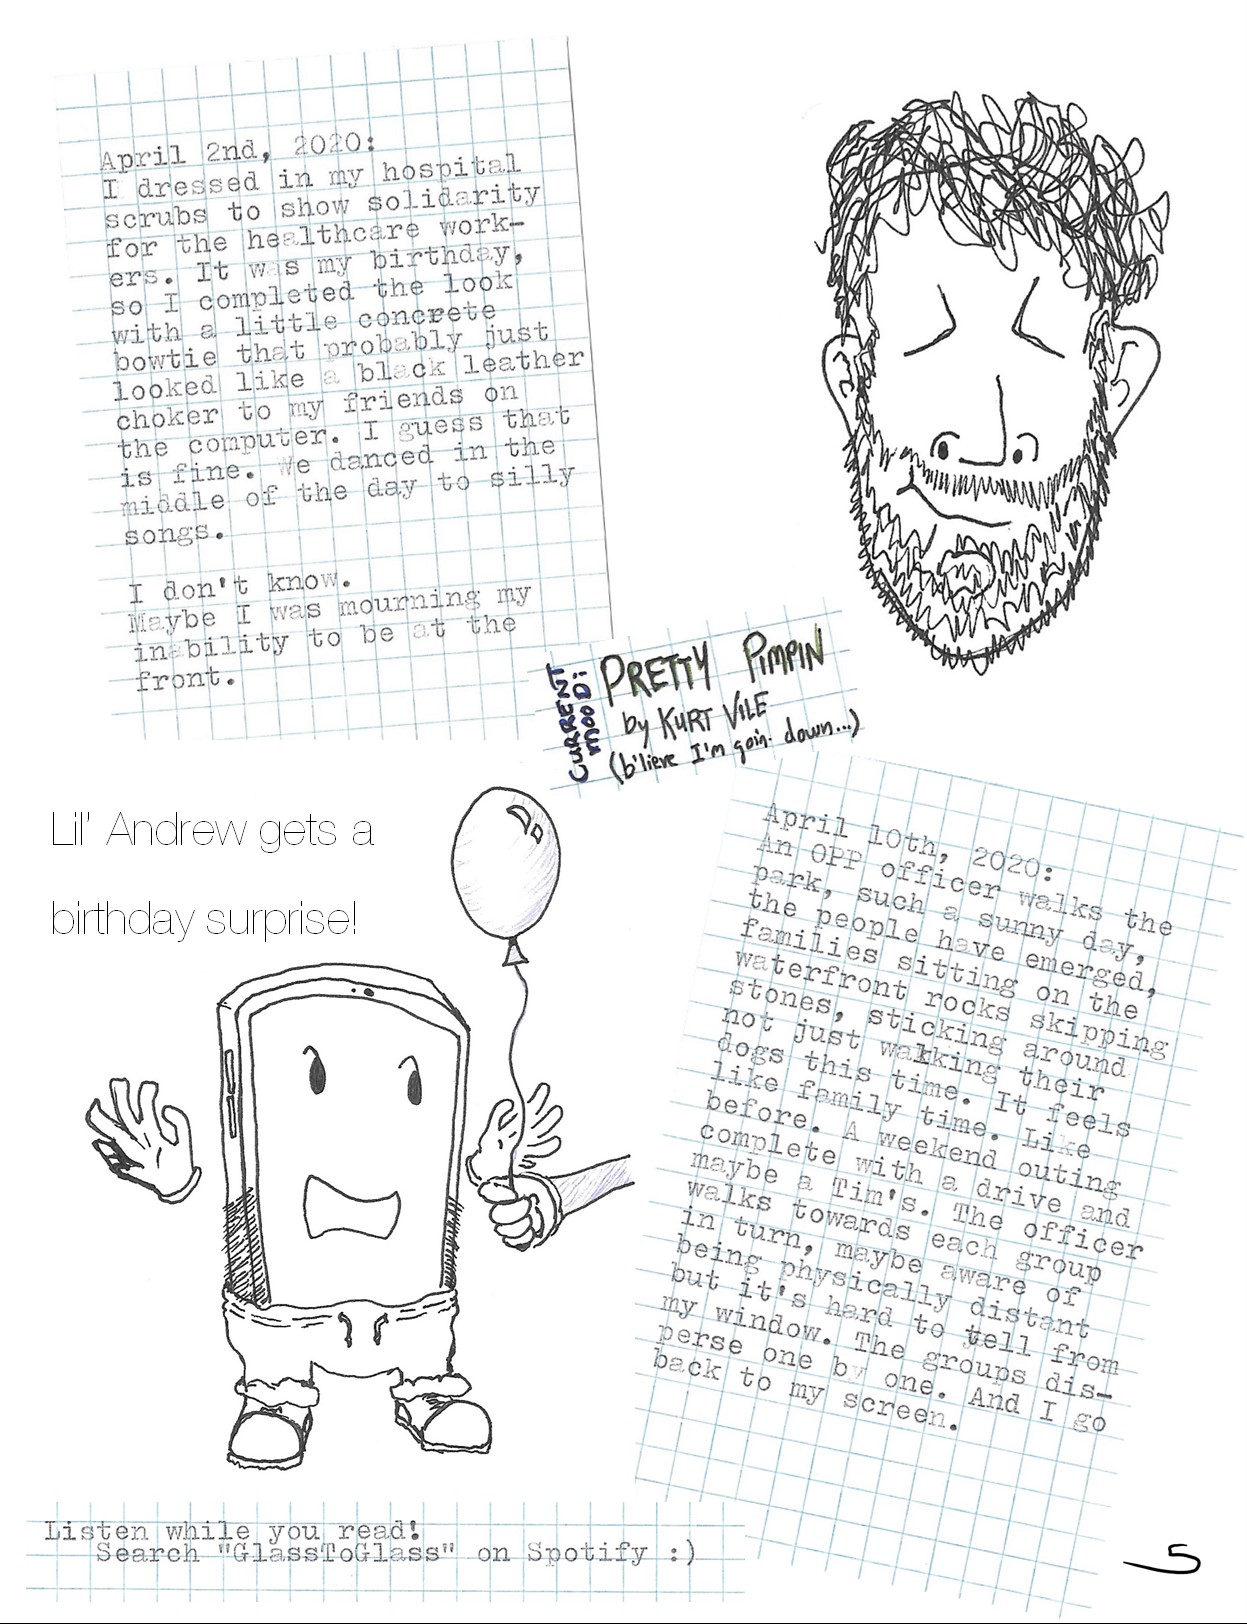 April 2nd, 2020:
I dressed in my hospital
scrubs to show solidarity
for the healthcare work-
ers. It was my birthday,
so I completed the look
with a little concrete
bowtie that probably just
looked like a black leather
choker to my friends on
the computer. I guess that
is fine. We danced in the
middle of the day to silly
songs.
I don't know.
Maybe I was mourning my
inability to be at the
front.
CURRENT
MOOD:
PRETTY PIMPIN
by KURT VILE
(b'lieve I'm goin. down...)
Lil' Andrew gets a
birthday surprise!
April 10th, 2020:
An OPP officer walks the
park, such a sunny day,
the people have emerged,
families sitting on the
waterfront rocks skipping
stones, sticking around
not just walking their
dogs this time. It feels
like family time. Like
before. A weekend outing
complete with a drive and
maybe a Tim's. The officer
walks towards each group
in turn, maybe aware of
being physically distant
but it's hard to tell from
my window. The groups dis-
perse one by one. And I go
back to my screen.
Listen while you read!
Search "GlassToGlass" on Spotify :)
5